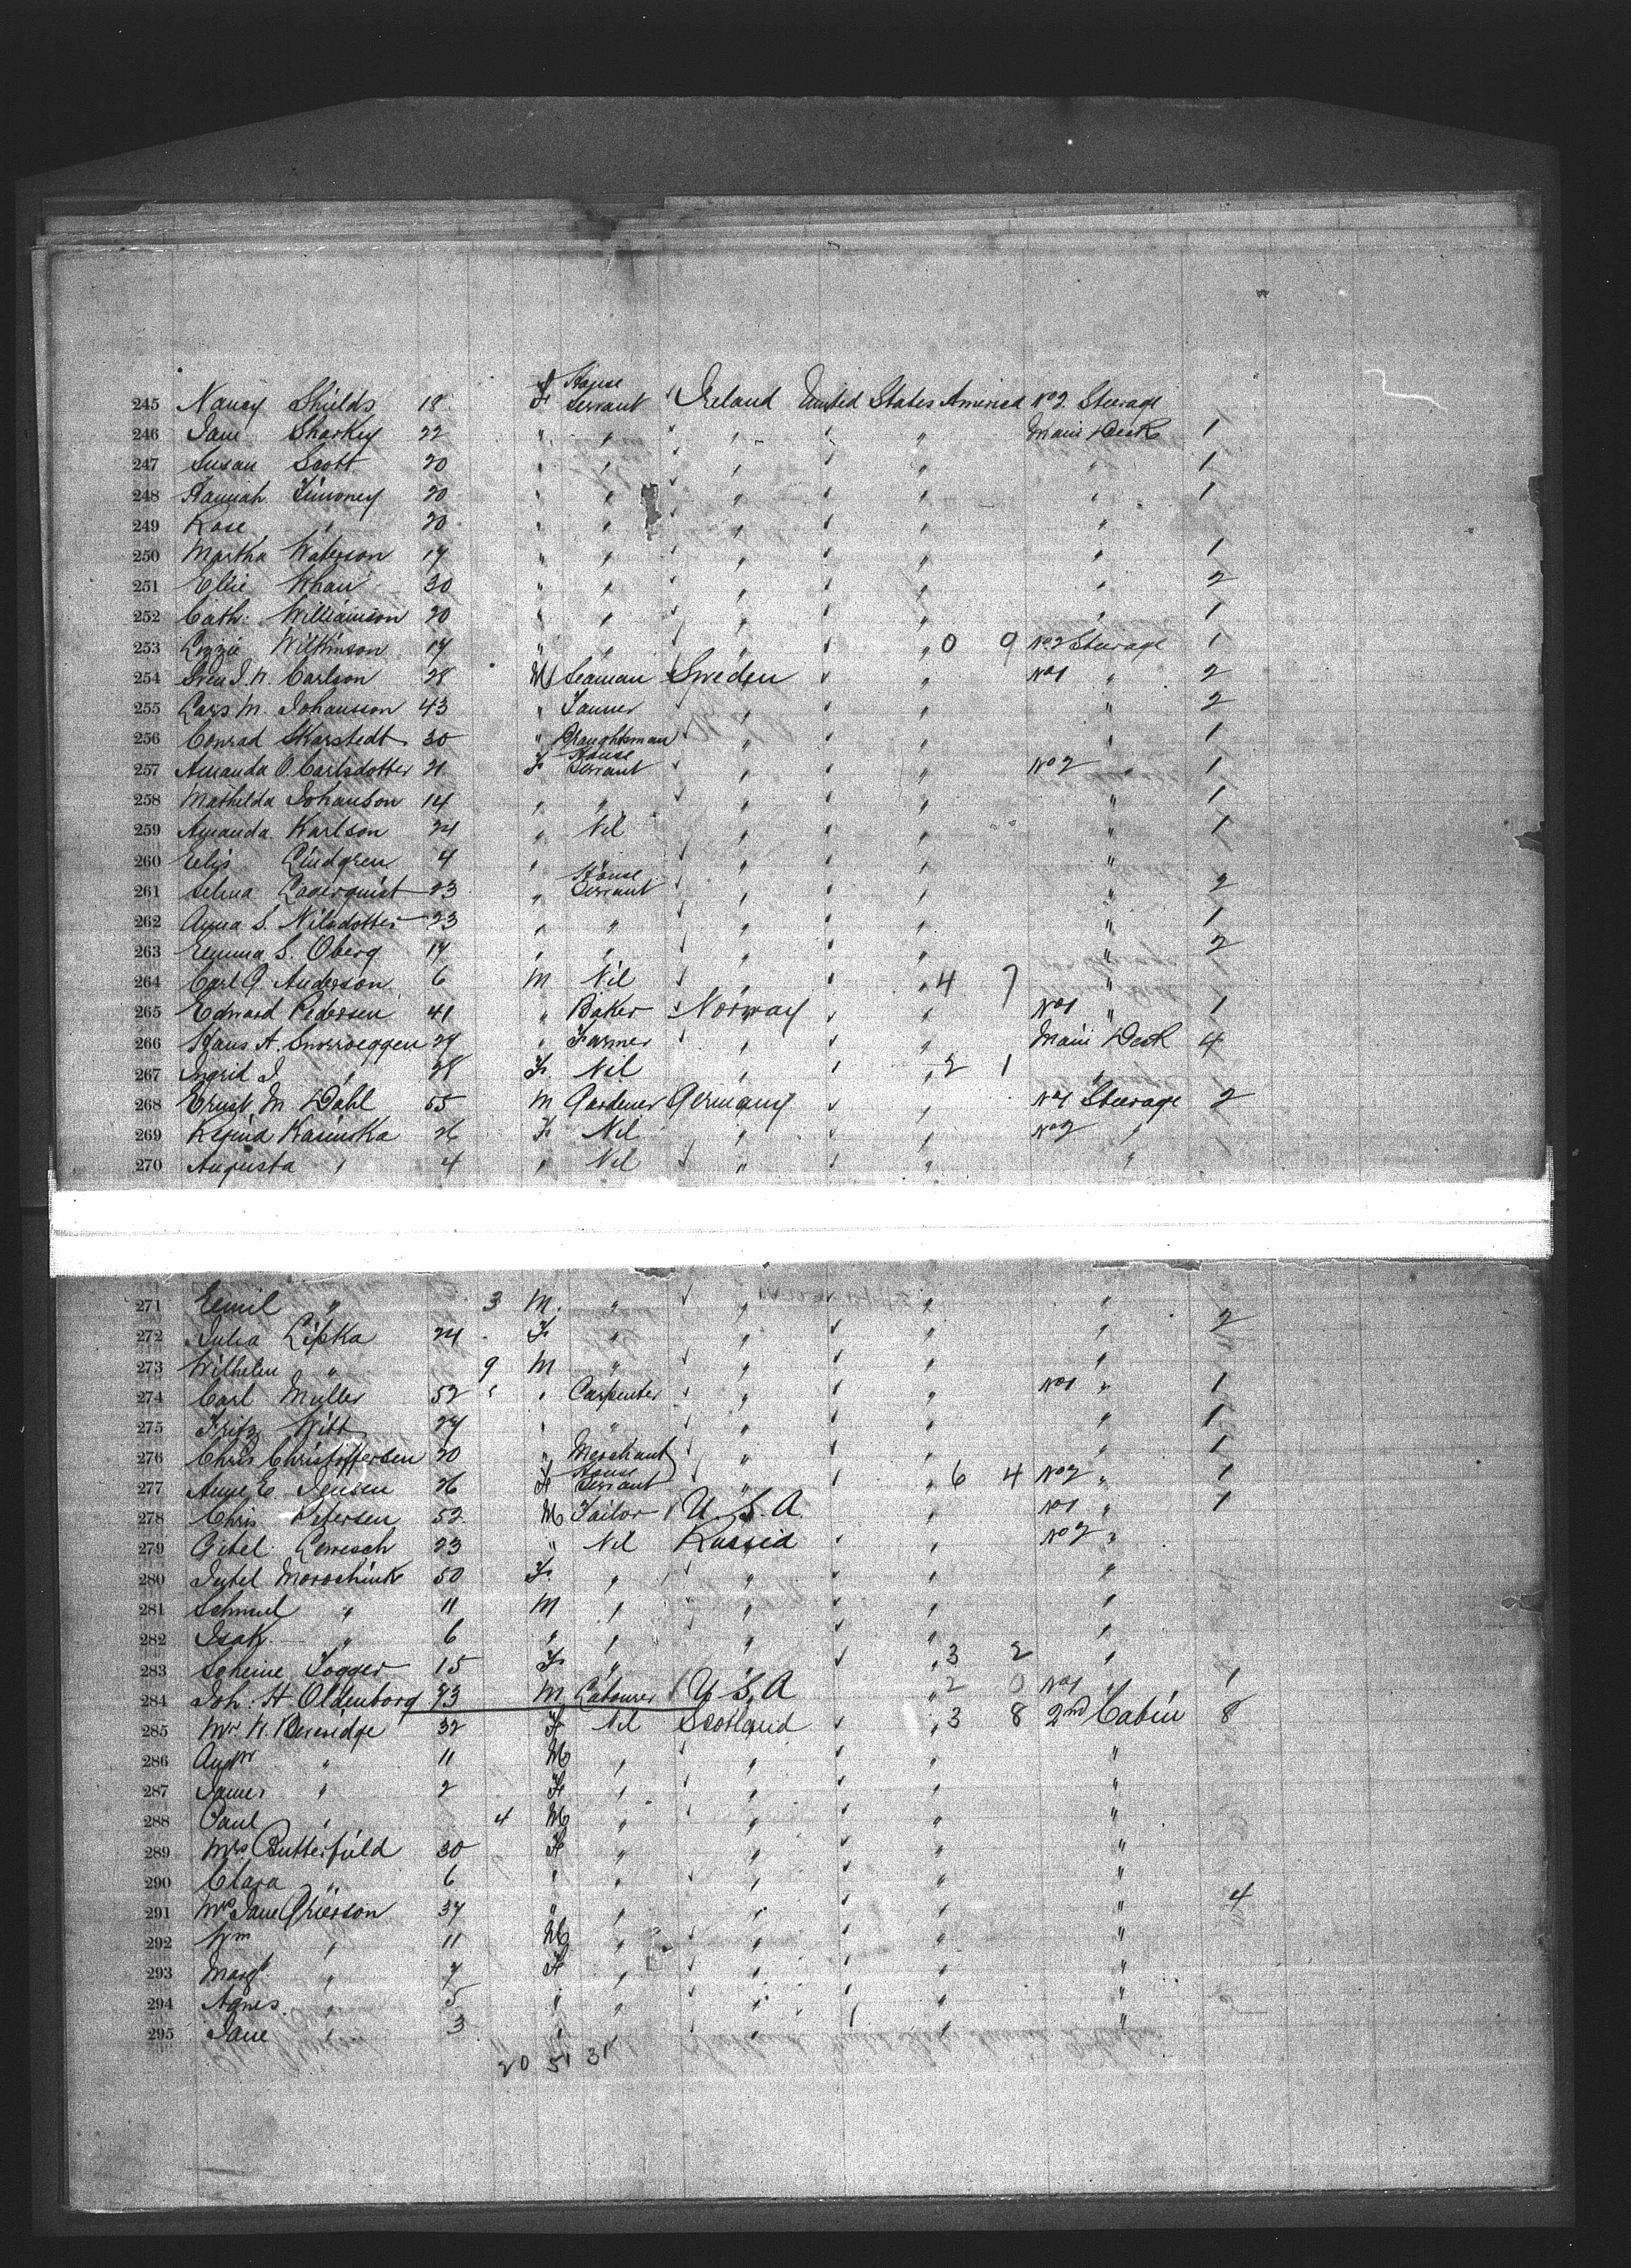 245 Nancy Shields 18 F House Servant Ireland United States America No 2 Steerage
246 Jane Sharkey 22 " " " " " Main Deck 1
247 Susan Scott 20 " " " " " " 1
248 Hannah Timoney 20 " " " " " " 1
249 Rose " 20 " " " " " "
250 Martha Waterson 17 " " " " " " 1
251 Ellie Whan 30 " " " " " " 2
252 Cath: Williamson 20 " " " " " " 1
253 Lizzie Wilkinson 17 " " " " " 0 9 No 2 Steerage 1
254 Sven J. N. Carlson 28 M Seaman Sweden " " No 1 " 2
255 Lars M. Johanson 43 " " " " " 2
256 Conrad Skarstedt 30 " Draughtsman " " " " 1
257 Amanda O. Carlsdotter 21 F House Servant " " " No 2 " 1
258 Mathilda Johanson 14 " " " " " " 1
259 Amanda Karlson 24 " Nil " " " " 1
260 Elis Lindgren 4 " " " " "
261 Selma Lagerquist 23 " House Servant " " " " 2
262 Anna S. Nilsdotter 23 " " " " " " 1
263 Emma S. Oberg 17 " " " " " " 2
264 Carl G. Anderson 6 M Nil " " " 4 7 "
265 Edward Pedersen 41 " Baker Norway " " No 1 " 1
266 Hans A. 29 " Farmer " " " Main Deck 4
267 Ingrid J. " 28 F Nil " " " 2 1 "
268 Ernst M. Dahl 55 M Gardener Germany " " No 1 Steerage 2
269 Kasinska 26 F Nil " " " No 2 "
270 Augusta " 4 " Nil " " " "
271 Emil " 3 M " " " " "
272 Julia Lipka 24 F " " " " " 2
273 Wilhelm " 9 M " " " " "
274 Carl Muller 52 " Carpenter " " " No 1 " 1
275 Fritz Witt 27 " " " " " " 1
276 Chris Christoffersen 20 " Merchant " " " " 1
277 Anne E. Jensen 26 F House Servant " " " 6 4 No 2 " 1
278 Chris Petersen 52 M Tailor U.S.A. " No 1 " 1
279 Gitel 23 " Nil Russia " " No 2 "
280 50 F " " " " "
281 Schmul " 11 M " " " " "
282 Isak " 6 " " " " " "
283 15 F " " " " 3 2 "
284 Joh. H Oldenborg 73 M Labourer U S A " 2 0 No 1 " 1
285 Beveridge 32 F Nil Scotland " " 3 8 2nd Cabin 8
286 Andw " 11 M " " " " "
287 James " 2 F " " " " "
288 Paul " 4 M " " " " "
289 Mrs Butterfield 30 F " " " " "
290 Clara " 6 " " " " " "
291 Mrs Jane Grierson 37 " " " " " " 4
292 Wm " 11 M " " " " "
293 Margt " 7 F " " " " "
294 Agnes " 5 " " " " " "
295 Jane " 3 " " " " " "
20 51 31